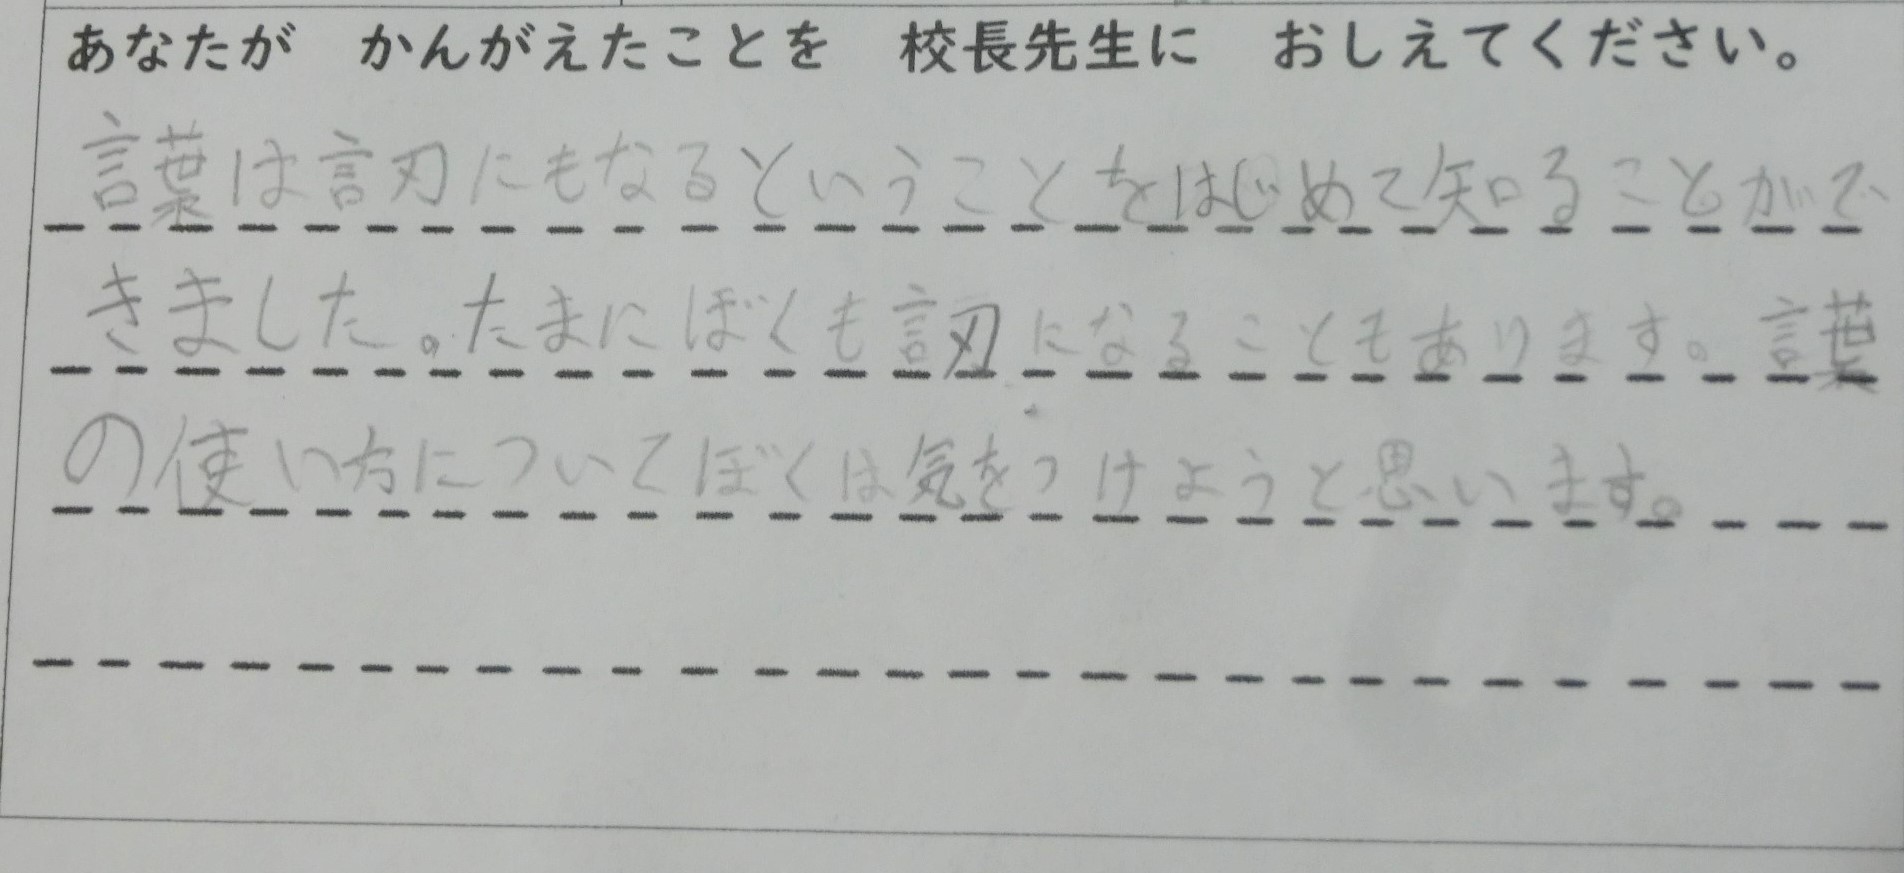 あなたが　かんがえたことを　校長先生に　おしえてください。
言葉は言刃にもなるということをはじめて知ることがで
きました。たまにぼくも言刃になることもあります。言葉
の使い方についてぼくは気をつけようと思います。